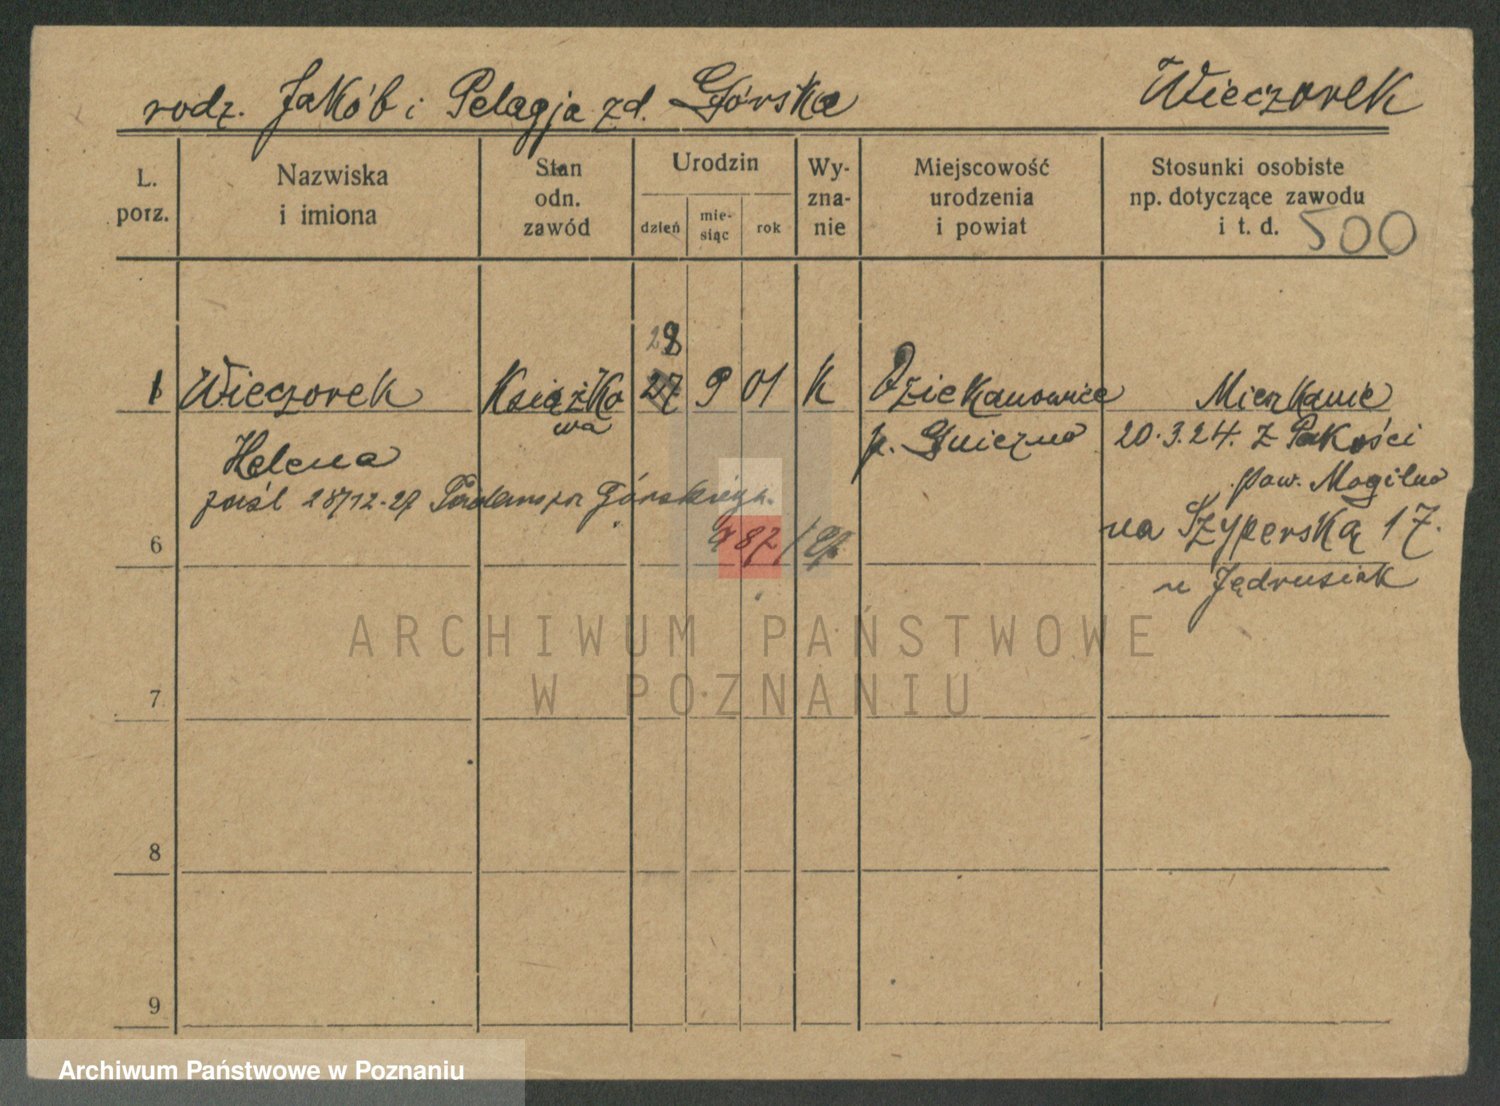 rodz. Jakób i Pelagja zd. Górska Wieczorek
L. porz.
Nazwiska i imiona
Stan odn. zawód
Urodzin
dzień
mie-siąc
rok
Wy-zna-nie
Miejscowość urodzenia i powiat
Stosunki osobiste np. dotyczące zawodu i t. d. 500
28
1 Wieczorek Książko 27 9 01 K Dziekanowice Mieszkanie
wa p. Gniezno 20.3.24. z Pakości
Helena pow. Mogilno
zaśl 28/12-27 Górskiego
87/27 na Szyperską 17.
6
u Jędrusiak
ARCHIWUM PAŃSTWOWE
W POZNANIU
7
8
9
Archiwum Państwowe w Poznaniu